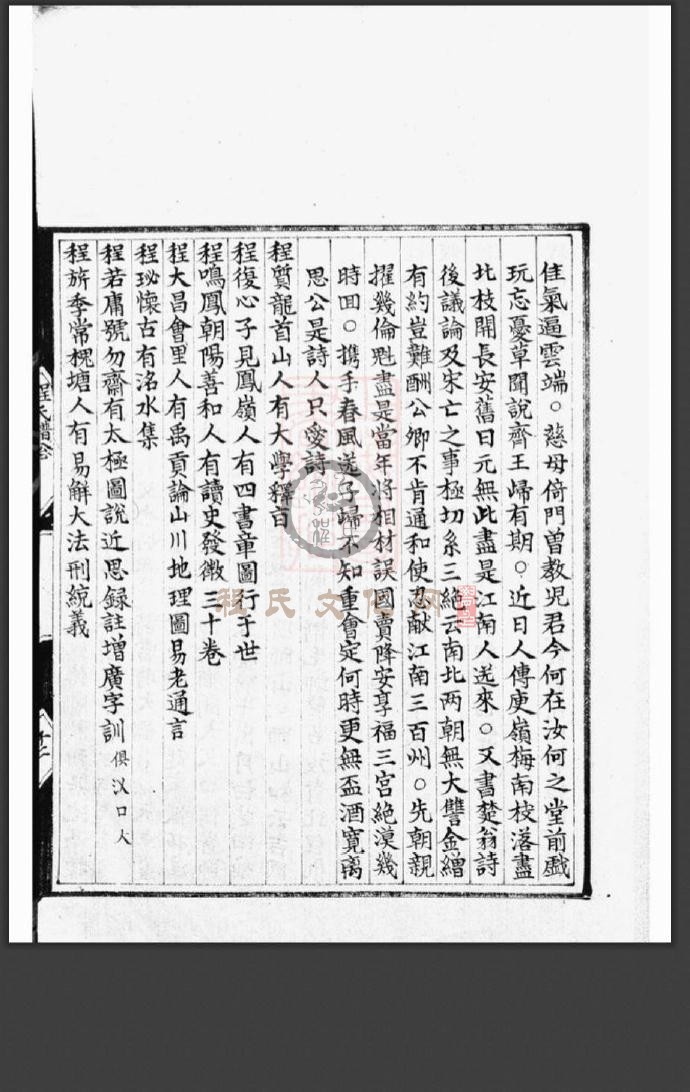 佳氣逼雲端○慈母倚門曾教児君今何在汝何之堂前戲
玩忘憂草聞說齊王歸有期○近日人傳庾嶺梅南枝落盡
北枝開長安舊日元無此盡是江南人送來○又書楚翁詩
後議論及宋亡之事極切系三絶云南北两朝無大讐金繒
有約豈難酬公卿不肯通和使力献江南三百州○先朝親
擢幾倫魁盡是當年将相材誤國賣降安享福三宮絶漠幾
時囬○携手春風送子歸不知重會定何時更無盃酒寛离
思公是詩人只愛詩
程質龍首山人有大學釋旨
程復心子見鳳嶺人有四書章圖行于世
程鳴鳳朝陽善和人有讀史發微三十卷
程大昌會里人有禹貢論山川地理圖易老通言
程珌懷古有洺水集
程若庸號勿齋有太極圖說近思録註增廣字訓 俱汊口人
程旂季常槐塘人有易解大法刑統義
程氏譜
程氏文化网